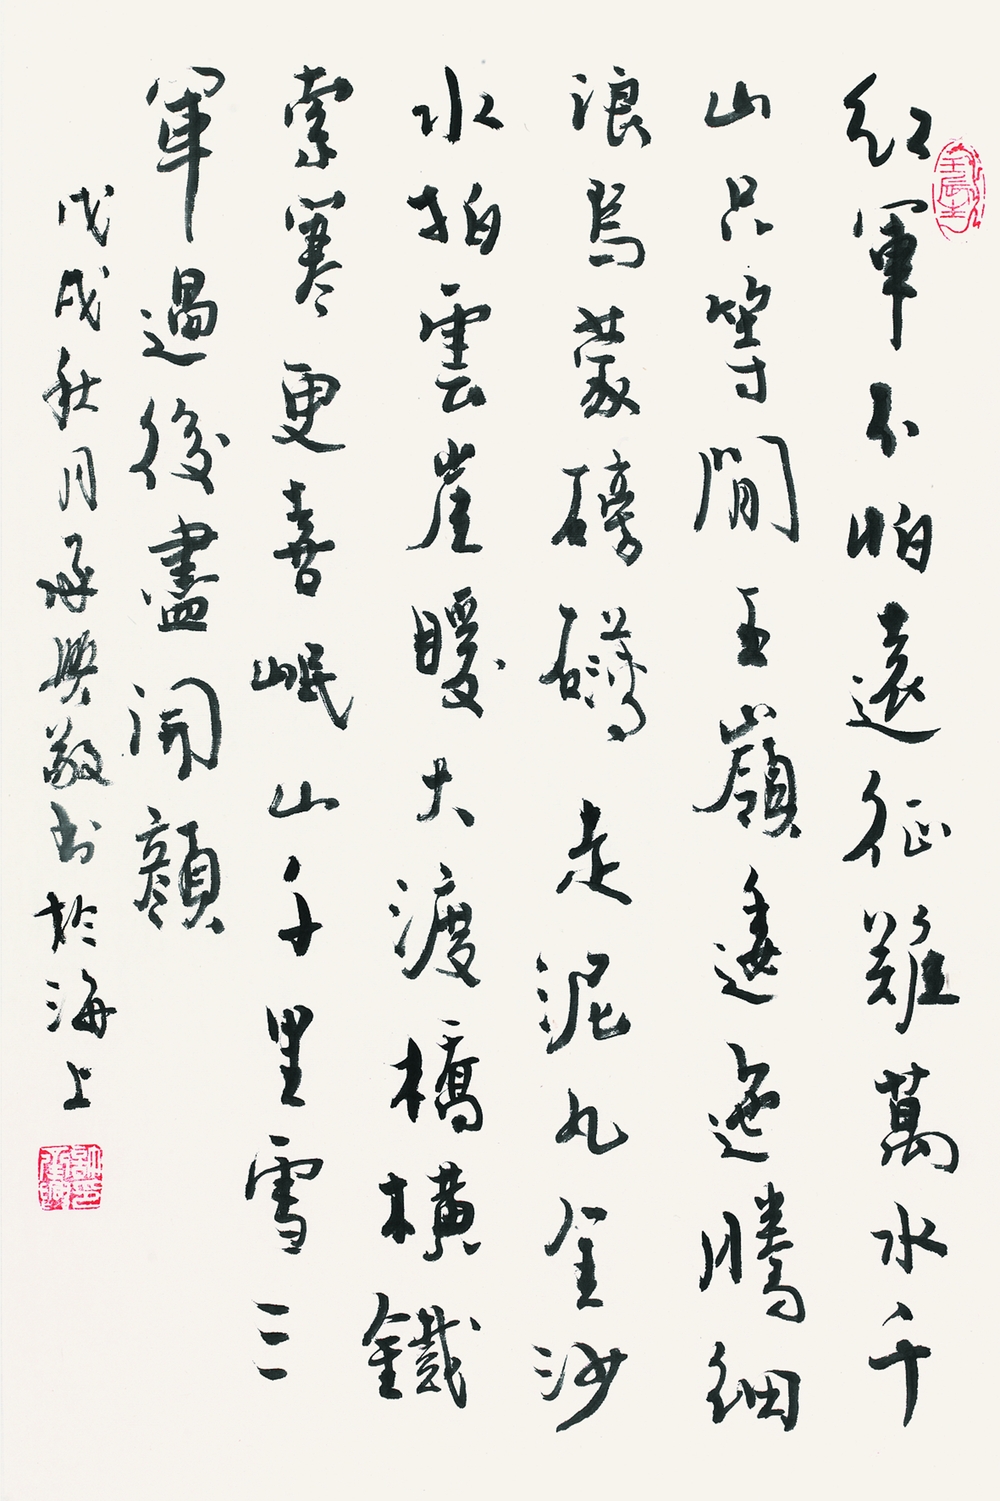 紅軍不怕遠征難萬水千
山只等閒五嶺逶迤騰細
浪烏蒙磅礴走泥丸金沙
水拍雲崖暖大渡橋橫鐵
索寒更喜岷山千里雪三
軍過後盡開顏
戊戌秋月承興敬书於海上